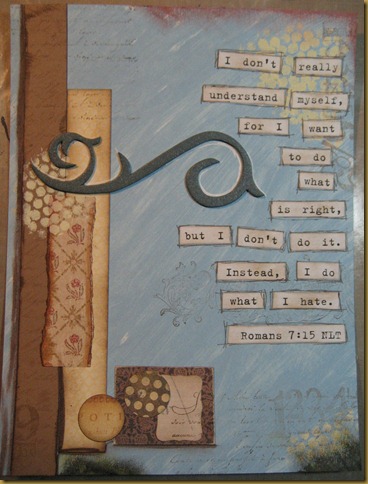 I don't really
understand myself,
for I want
to do
what
is right,
but I don't do it.
Instead, I do
what I hate.
Romans 7:15 NLT
OTI